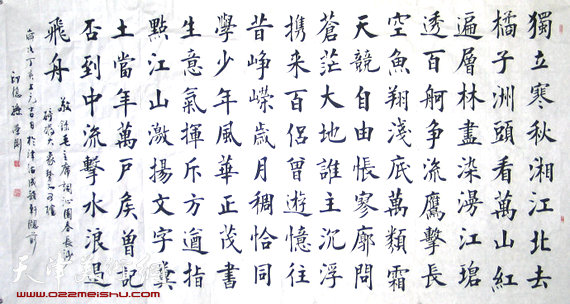 獨立寒秋湘江北去
橘子洲頭看萬山紅
遍層林盡染漫江碧
透百舸争流鷹擊長
空魚翔淺底萬類霜
天競自由悵寥廓問
蒼茫大地誰主沉浮
携来百侣曾遊憶往
昔崢嶸歲月稠恰同
學少年風華正茂書
生意氣揮斥方遒指
點江山激揚文字糞
土當年萬户侯曾記
否到中流擊水浪遏
飛舟
敬錄毛主席詞沁園春長沙
天津美术网
www.022meishu.com